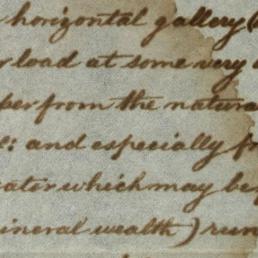 horizontal gallery (
load at some very
per from the natura
: and especially f
ater which may be
ineral wealth) run